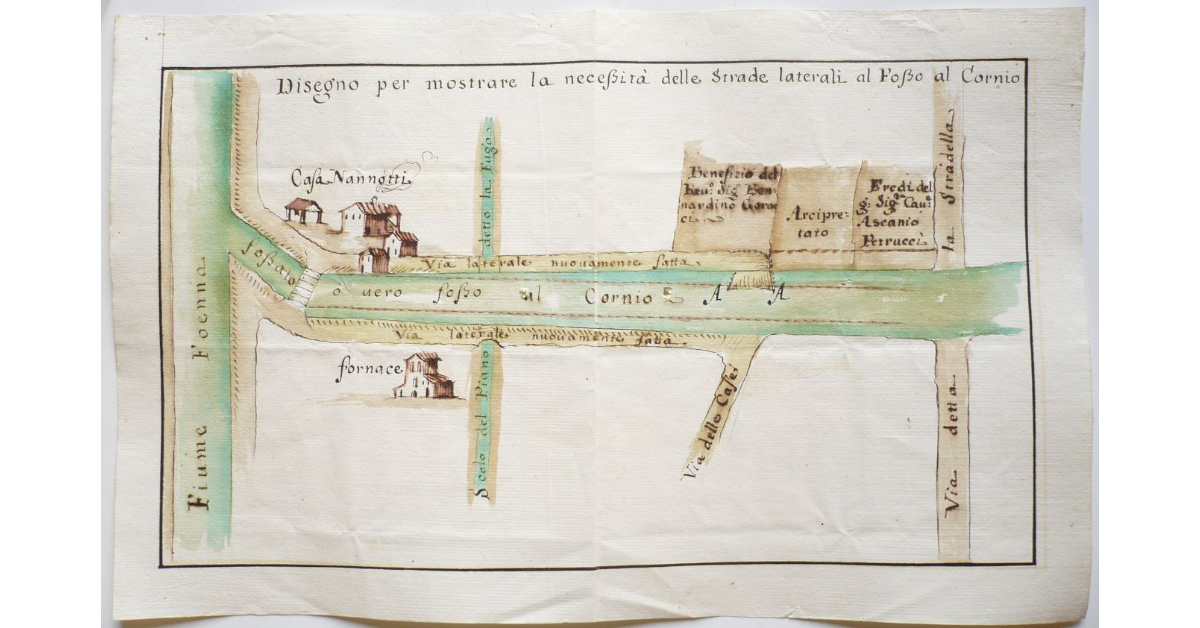 Disegno per mostrare la neceßità delle Strade laterali al Foßo al Cornio
Casa Nannotti
detto la Fuga
Benefizio del
Reu.º Sig. Ber-
nardino Gorac
ci
Arcipre-
tato
Eredi del
q: Sig.re Cau.e
Ascanio
Petrucci
la Stradella
foßato
Via laterale nuouamente fatta.
o uero foßo al Cornio
A A
Via laterale nuouamente fatta.
Fornace
Scolo del Piano
Via delle Case
Via detta
Fiume Foenna